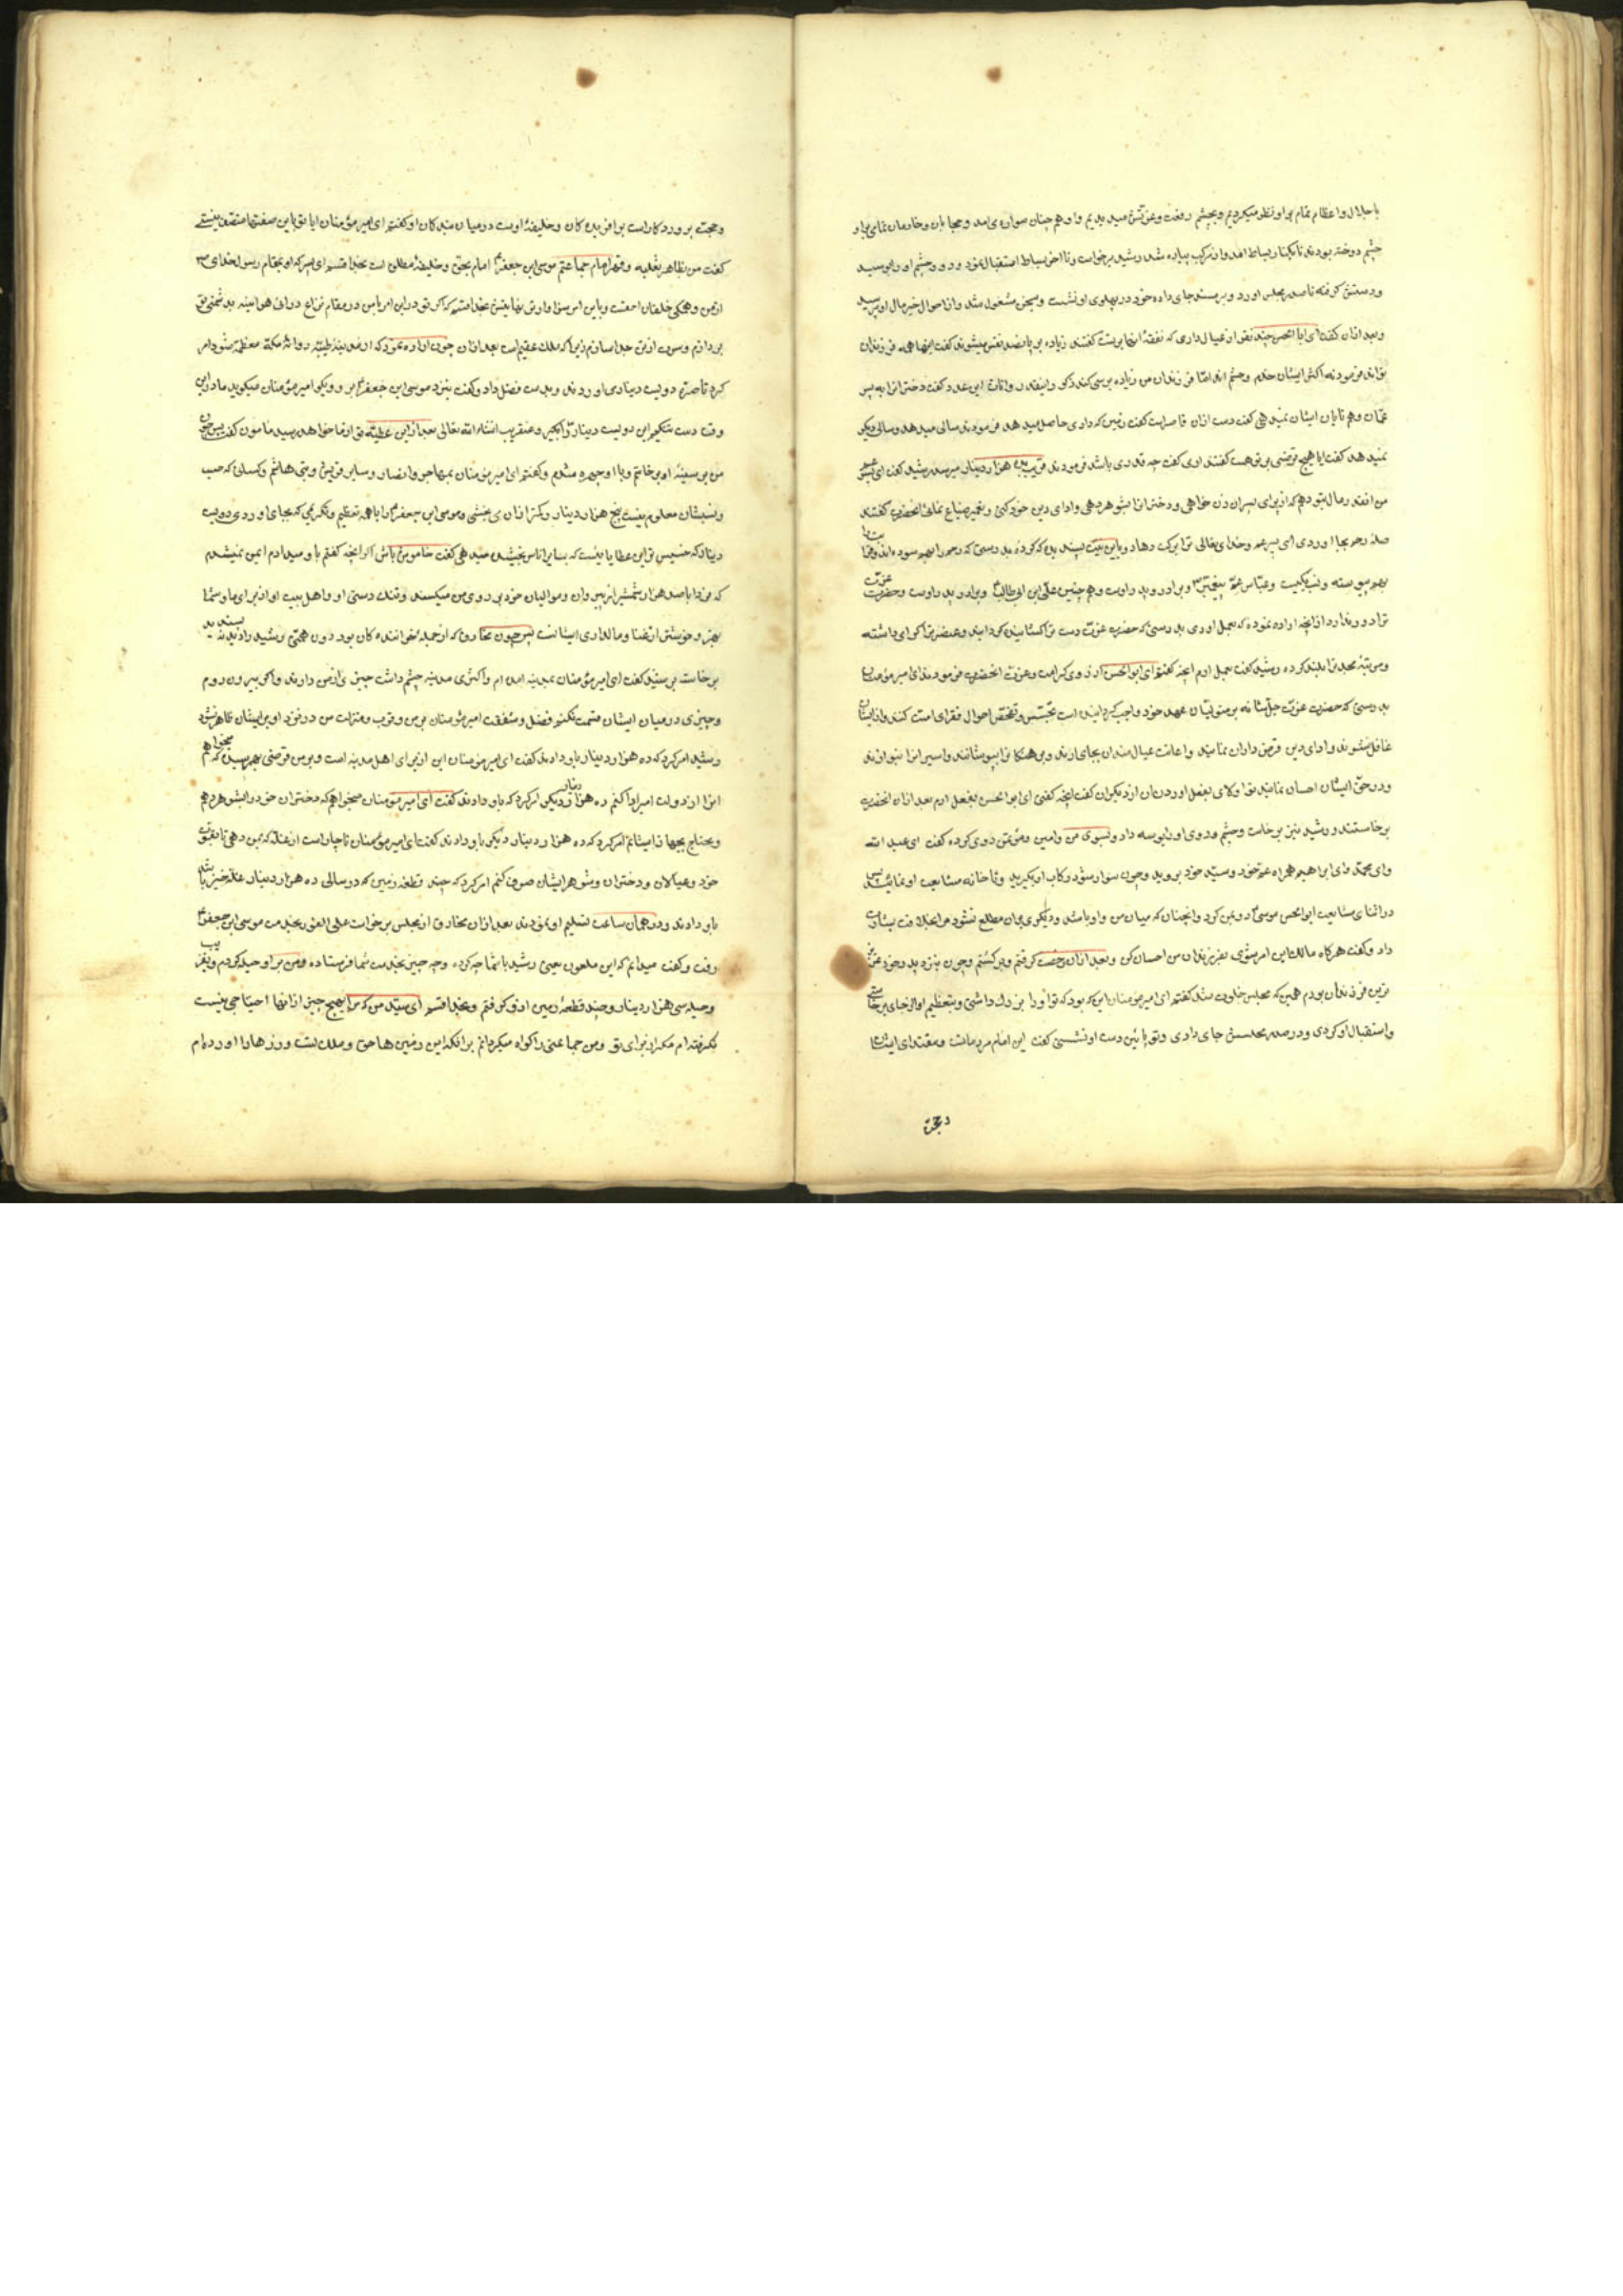 باجلال واعظام تمام براو نظر میکردیم وبچشم رفعت وعزتش میدیدیم واو همچنان سواره می امد وحجابان وخادمان تمامی براو
چشم دوخته بودند تا بکنار بساط امد واز مرکب پیاده شد رشید برخواست وتا اخر بساط استقبال نمود ورو وچشم اورا بوسید
ودستش کرفته تا صدر مجلس اورد وبر مسند جای داده خود در پهلوی او نشست وبسخن مشغول شد واز احوال خیر مال او پرسید
وبعد ازان کفت ای ابا الحسن چند نفر از عیال داری که نفقهٔ انها برتست کفتند زیاده بر پانصد نفس میشوند کفت اینها همه فرزندان
تواند فرمود نه اکثر ایشان خدم وحشم اند اما فرزندان من زیاده برسی کند ذکور اینقدر واناث این عدد کفت دخترانرا به پسر
عمان وهمتایان ایشان نمیدهی کفت دست ازان قاصراست کفت زمین که داری حاصل میدهد فرمودند سالی میدهد وسالی دیکر
نمیدهد کفت ایا هیچ قرضی برتو هست کفتند اری کفت چه قدری باشد فرمودند قریب بده هزار دینار میرسد رشید کفت ای پسر عم
من انقدر مال بتو دهم که از برای پسران زن خواهی ودخترانرا بشوهر دهی وادای دین خود کنی وتعمیر ضیاع نمائی انحضرت کفتند
صلهٔ رحم بجا اوردی ای پسر عم وخدای تعالی ترا برکت دهاد وباین نیت پسندیده که کردهٔ بدرستی که رحم را بهم سوده اند وقرابت ما
بهم پیوسته ونسب یکیست وعباس عم پیغمبر وبرادر پدر اوست وهم چنین علی ابن ابی طالب وبرادر پدر اوست وحضرت عزت
ترا دور ندارد ازانچه اراده نموده که بعمل اوری بدرستی که حضرت عزت دست ترا کشاینده کردانید وعنصر ترا کرامی داشته
ومرتبهٔ مجد ترا بلند کرده رشید کفت بعمل ارم انچه کفتم ای ابو الحسن از روی کرامت وعزت انحضرت فرمودند ای امیر مؤمنان
بدرستی که حضرت عزت جل شانه بر متولیان عهد خود واجب کردانیده است تجسس وتفحص احوال فقرای امت کنند واز ایشان
غافل نشوند وادای دین قرض داران نمایند واعانت عیال مندان بجای ارند وبرهنکانرا بپوشانند واسیرانرا بنوازند
ودر حق ایشان احسان نمایند تو اولای بفعل اوردن ان از دیکران کفت انچه کفتی ای ابو الحسن بفعل ارم بعد ازان انحضرت
برخاستند ورشید نیز برخاست وچشم وروی اورا بوسه داد وبسوی من وامین ومؤتمن روی کرده کفت ای عبد الله
وای محمد وای ابراهیم همراه عم خود وسید خود بروید وچون سوار شود رکاب او بکیرید وتا خانه مشایعت او نمائید پس
در اثنای مشایعت ابو الحسن موسی رو بمن کرد وانچنان که میان من واو باشد ودیکری بران مطلع نشود مرا بخلافت بشارت
داد وکفت هرکاه مالک این امر شوی بفرزندان من احسان کن وبعد ازان رخصت کرفتم وبر کشتم وچون بنزد پدر خود
ترین فرزندان بودم همین که مجلس خلوت شد کفتم ای امیر مؤمنان این که بود که تو اورا بزرک داشتی وبتعظیم او از جای برخاستی
واستقبال او کردی ودر صدر مجلسش جای دادی وتو پائین دست او نشستی کفت این امام مردمانست ومقتدای ایشان
وحجت
وحجت پروردکاراست بر افریده کان وخلیفهٔ اوست درمیان بندکان او کفتم ای امیر مؤمنان ایا تو باین صفتها متصف نیستی
کفت من بظاهر بغلبه وقهر امام جماعتم موسی ابن جعفر امام بحق وخلیفهٔ مطلق است بخدا قسم ای پسر که او بمقام رسول خدای
ازمن وهمکی خلقان احقست وباین امر سزاوارتر بغایتش بخدا قسم که اکر تو در این امر بامن در مقام نزاع درائی هرائینه بدشمنی تو
پردازم وسرت از تن جدا سازم زیرا که ملک عقیم است بعد ازان چون اراده نمود که از مدینهٔ طیبه روانهٔ مکه معظمه شود امر
کرد تا صرهٔ دویست دیناری اوردند وبدست فضل داد وکفت بنزد موسی ابن جعفر بر وبکو امیر مؤمنان میکوید ما دراین
وقت دست تنکیم این دویست دینار را بکیر وعنقریب انشاء الله تعالی بعد ازاین عطیه تو ازما خواهد رسید مامون کفت پس من
من بر سینهٔ او برخاستم وبا او چهره شدم وکفتم ای امیر مؤمنان بمهاجر وانصار وسایر قریش وبنی هاشم وکسانی که حسب
ونسبشان معلوم نیست پنج هزار دینار وکمتر ازان می بخشی وموسی ابن جعفر را باهمه تعظیم وتکریمی که بجای اوردی دویست
دینار که خسیس ترین عطایا نیست که بسایر ناس بخشیده میدهی کفت خاموش باش اکر انچه کفتم باو میدادم ایمن نمیشدم
که فردا با صد هزار شمشیر از پیروان وموالیان خود بر روی من میکشد وتنک دستی او واهل بیت او از برای ما وشما
بهتر وخوبتر از غنا ومالداری ایشانست پس چون مخارق که از جمله خواننده کان بود دون همتی رشید را دید نه پسندید
برخاست برسید کفت ای امیر مؤمنان بمدینه امده ام واکثری مدینه چشم داشت چیزی ازمن دارند واکر بیرون روم
وچیزی درمیان ایشان قسمت نکنم فضل وشفقت امیر مؤمنان برمن وقرب ومنزلت من در نزد او بر ایشان ظاهر نشود
رشید امر کرد که ده هزار دینار باو دادند کفت ای امیر مؤمنان این از برای اهل مدینه است وبر من قرضی بهم رسیده که میخواهم
انرا از دولت امیر ادا کنم ده هزار دینار دیکر امر کرد که باو دادند کفت ای امیر مؤمنان میخواهم که دختران خود را بشوهر دهم
ومحتاج بجهاز ایشانم امر کرد که ده هزار دینار دیکر باو دادند کفت ای امیر مؤمنان ناچاراست از غله که بمن دهی تا بقوت
خود وعیالان ودختران وشوهر ایشان صرف کنم امر کرد که چند قطعه زمین که در سالی ده هزار دینار غله خیز باشد
باو دادند ودر همان ساعت تسلیم او نمودند بعد ازان مخارق از مجلس برخواست علی الفور بخدمت موسی ابن جعفر
رفت وکفت میدانم که این ملعون یعنی رشید باشما چه کرده وچه چیز بخدمت شما فرستاده ومن بر او حیله کردم
وحیله سی هزار دینار وچند قطعهٔ زمین ازو کرفتم وبخدا قسم ای سید من که مرا بهیچ چیز ازانها احتیاجی نیست
نکرفته ام مکر از برای تو ومن جماعتی را کواه میکردانم برانکه این زمین ها حق وملک تست وزرها را اورده ام